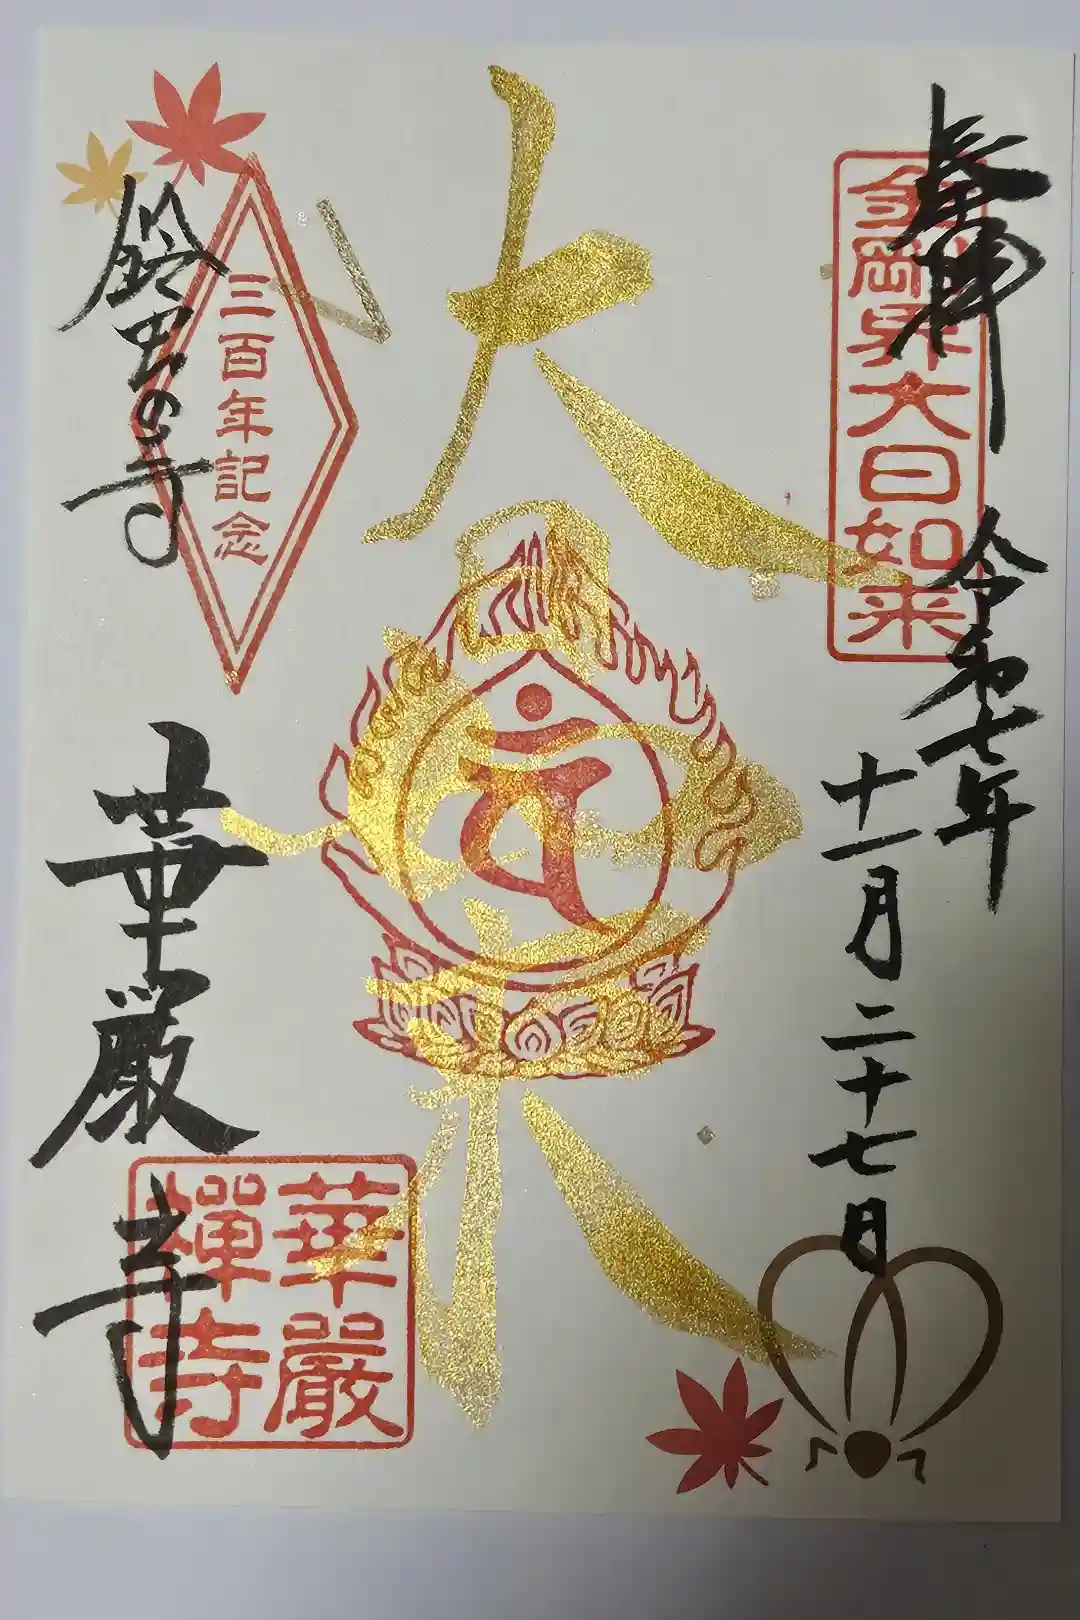 奉拝
令和七年
十一月二十七日
金剛界大日如来
大日如来
三百年記念
鈴虫の寺
華厳寺
華嚴
禅寺